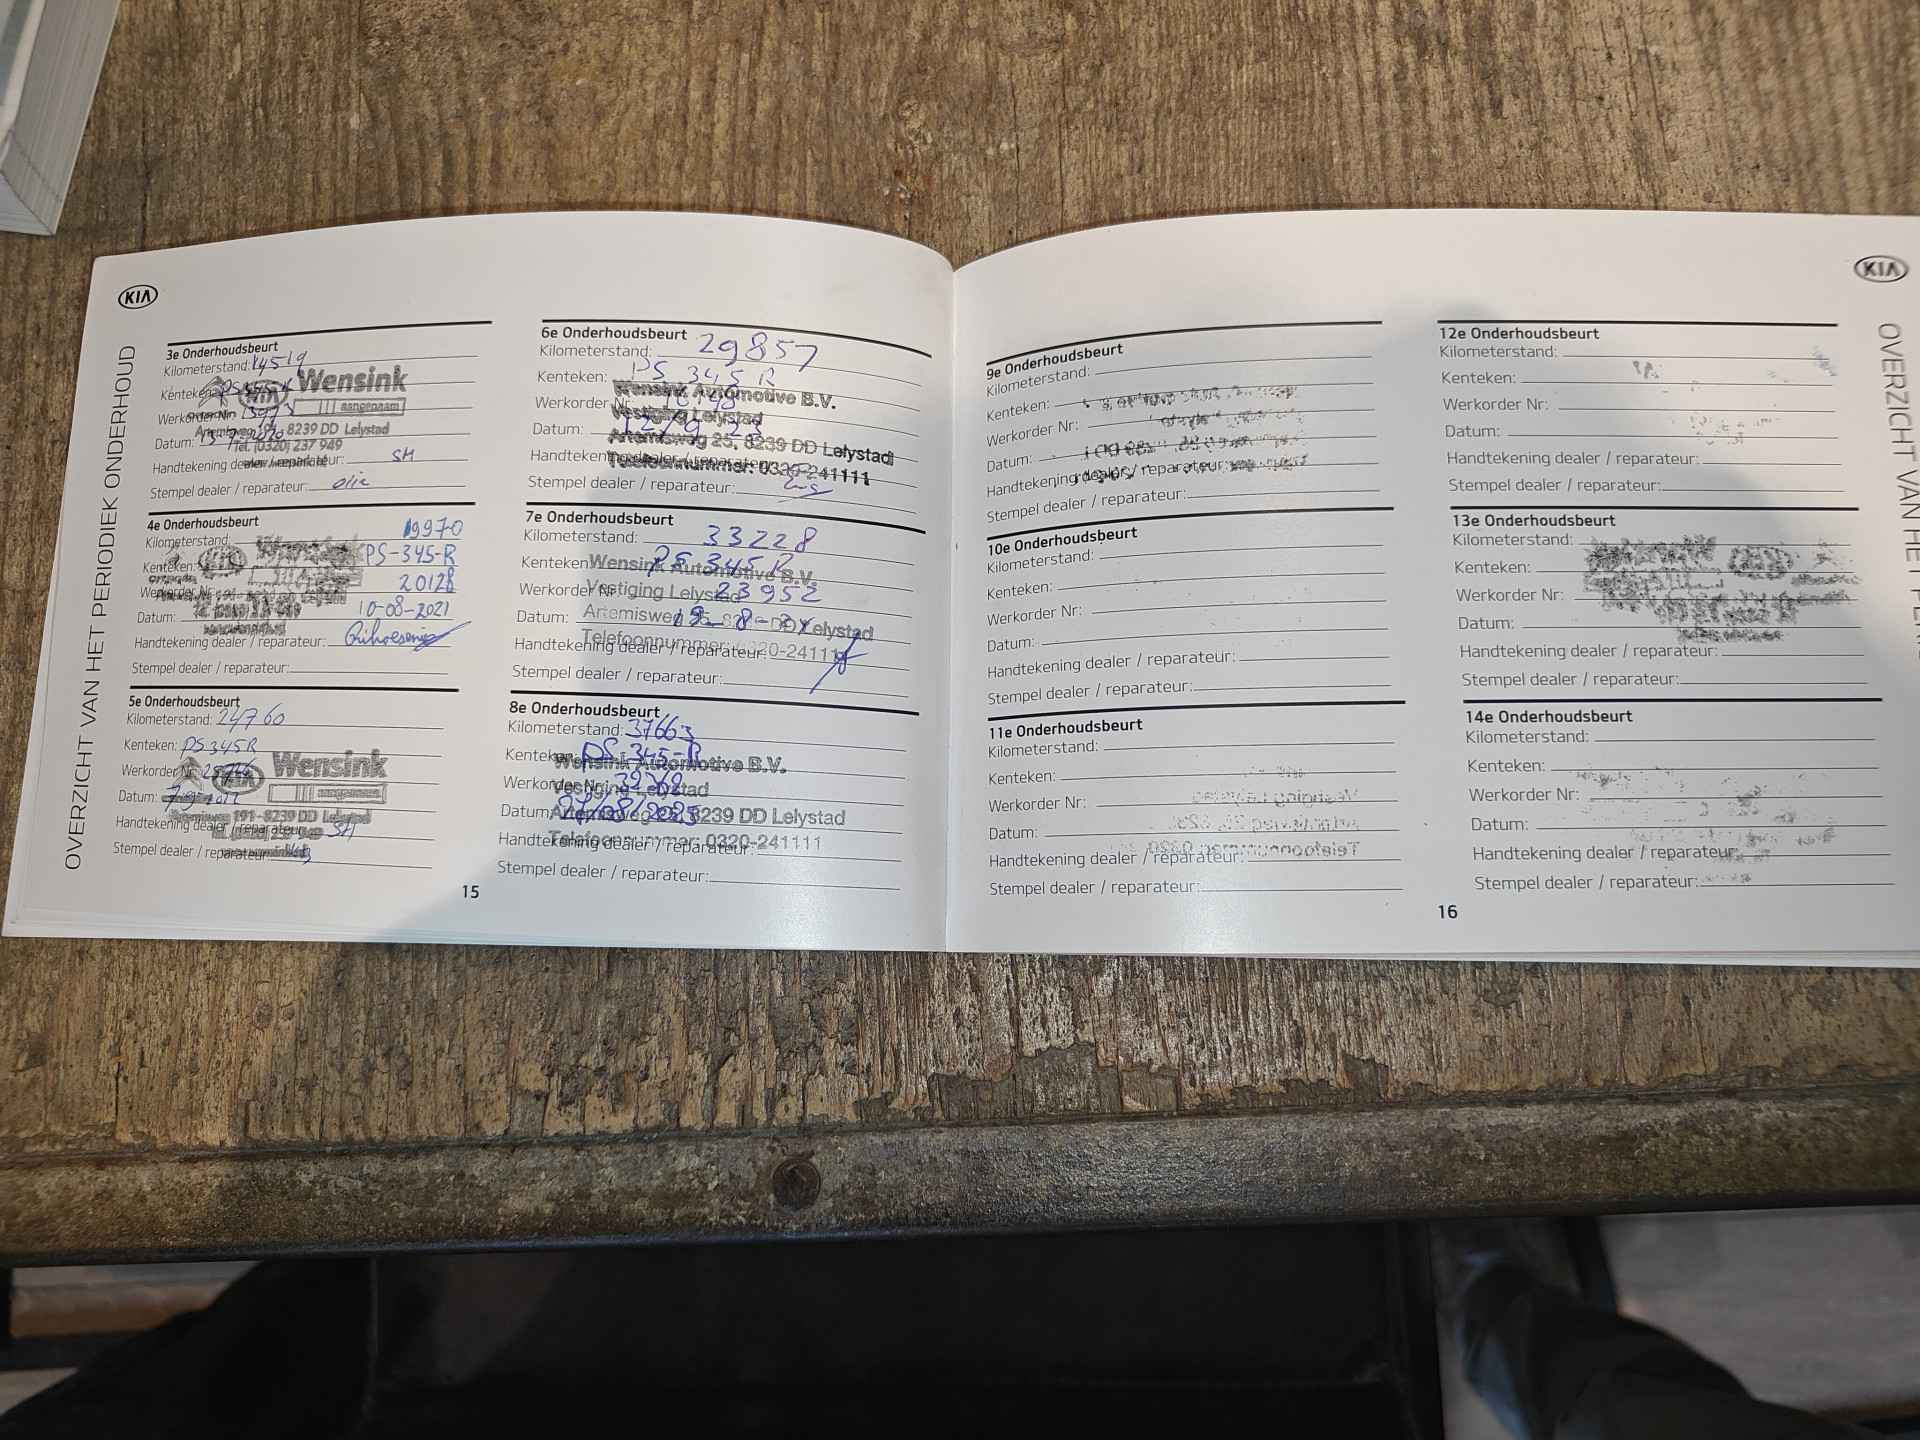 KIA
OVERZICHT VAN HET PERIODIEK ONDERHOUD
3e Onderhoudsbeurt
Kilometerstand: 14519
Kenteken:
Werkorder Nr:
Datum:
Handtekening dealer / reparateur: SH
Stempel dealer / reparateur: olie
KIA Wensink
aangenaam
Artemisweg 191 - 8239 DD Lelystad
Tel. (0320) 237 949
4e Onderhoudsbeurt
Kilometerstand: 19970
Kenteken: PS-345-R
Werkorder Nr:
Datum: 10-08-2021
Handtekening dealer / reparateur:
Stempel dealer / reparateur:
KIA Wensink
5e Onderhoudsbeurt
Kilometerstand: 24760
Kenteken: PS345R
Werkorder Nr:
Datum:
Handtekening dealer / reparateur: SH
Stempel dealer / reparateur:
KIA Wensink
aangenaam
Artemisweg 191 - 8239 DD Lelystad
6e Onderhoudsbeurt
Kilometerstand: 29857
Kenteken: PS 345 R
Werkorder Nr:
Datum:
Handtekening dealer / reparateur:
Stempel dealer / reparateur:
Wensink Automotive B.V.
Vestiging Lelystad
Artemisweg 25, 8239 DD Lelystad
Telefoonnummer: 0320-241111
7e Onderhoudsbeurt
Kilometerstand: 33228
Kenteken: PS 345 R
Werkorder Nr: 23952
Datum:
Handtekening dealer / reparateur:
Stempel dealer / reparateur:
Wensink Automotive B.V.
Vestiging Lelystad
Artemisweg 25, 8239 DD Lelystad
Telefoonnummer: 0320-241111
8e Onderhoudsbeurt
Kilometerstand: 37663
Kenteken: PS-345-R
Werkorder Nr:
Datum:
Handtekening dealer / reparateur:
Stempel dealer / reparateur:
Wensink Automotive B.V.
Vestiging Lelystad
Artemisweg 25, 8239 DD Lelystad
Telefoonnummer: 0320-241111
15
9e Onderhoudsbeurt
Kilometerstand:
Kenteken:
Werkorder Nr:
Datum:
Handtekening dealer / reparateur:
Stempel dealer / reparateur:
10e Onderhoudsbeurt
Kilometerstand:
Kenteken:
Werkorder Nr:
Datum:
Handtekening dealer / reparateur:
Stempel dealer / reparateur:
11e Onderhoudsbeurt
Kilometerstand:
Kenteken:
Werkorder Nr:
Datum:
Handtekening dealer / reparateur:
Stempel dealer / reparateur:
12e Onderhoudsbeurt
Kilometerstand:
Kenteken:
Werkorder Nr:
Datum:
Handtekening dealer / reparateur:
Stempel dealer / reparateur:
13e Onderhoudsbeurt
Kilometerstand:
Kenteken:
Werkorder Nr:
Datum:
Handtekening dealer / reparateur:
Stempel dealer / reparateur:
14e Onderhoudsbeurt
Kilometerstand:
Kenteken:
Werkorder Nr:
Datum:
Handtekening dealer / reparateur:
Stempel dealer / reparateur:
16
KIA
OVERZICHT VAN HET